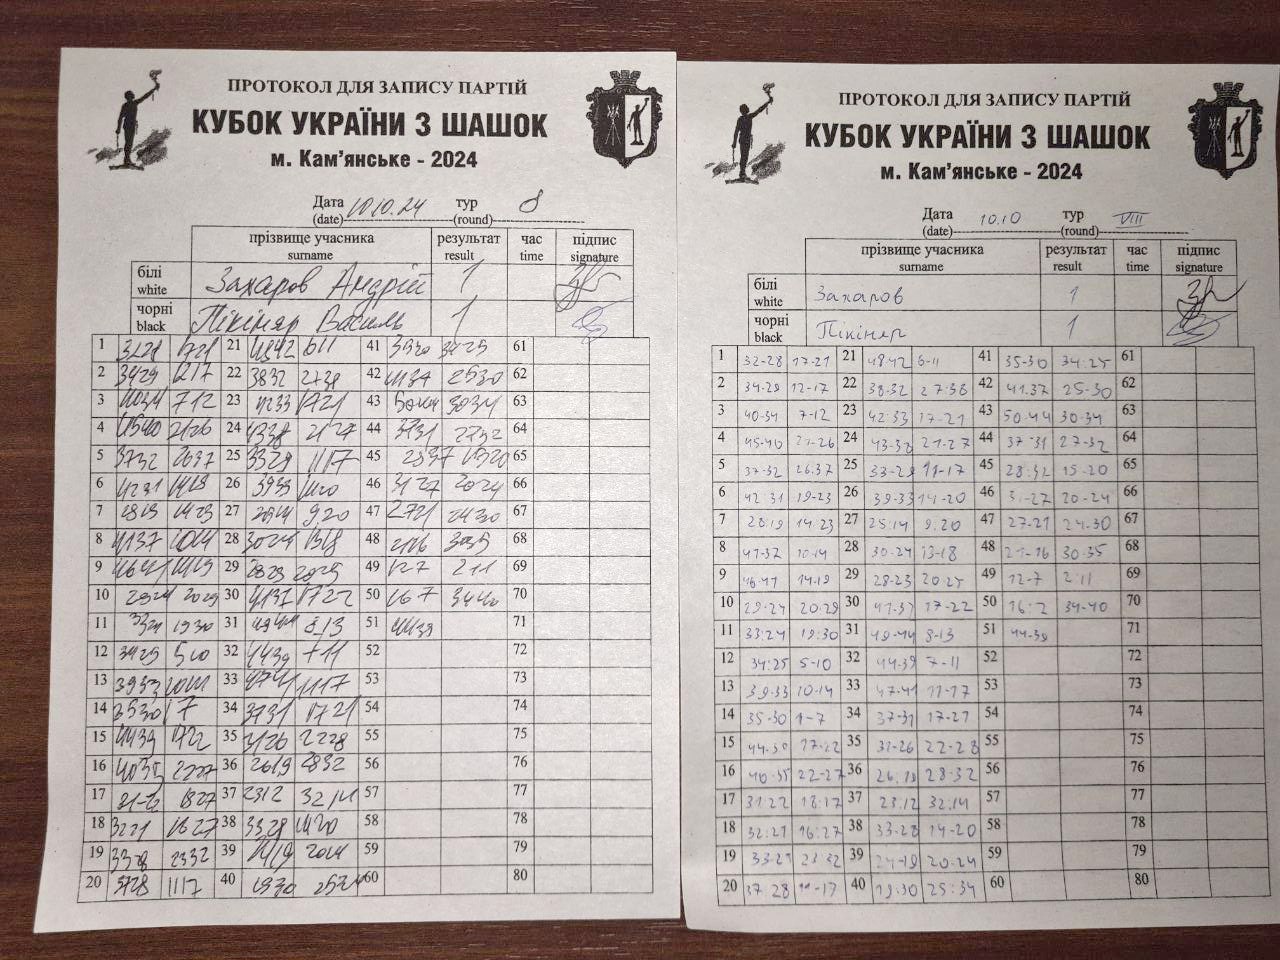 ПРОТОКОЛ ДЛЯ ЗАПИСУ ПАРТІЙ
КУБОК УКРАЇНИ З ШАШОК
м. Кам'янське - 2024
Дата (date) 10.10.24 тур (round) 8
прізвище учасника surname результат result час time підпис signature
білі white Захаров Андрій 1
чорні black Пікіняр Василь 1
1 1721 21 4842 611 41 61
2 3429 1217 22 3832 2738 42 2530 62
3 712 23 4233 1721 43 5044 3034 63
4 4540 2126 24 4338 2127 44 3731 2732 64
5 3732 2637 25 3329 1117 45 1520 65
6 4231 26 3933 1420 46 3127 2024 66
7 1423 27 2514 9.20 47 2721 2430 67
8 4137 1014 28 3024 1318 48 3035 68
9 4641 1419 29 2823 2025 49 127 211 69
10 2924 2029 30 4137 1722 50 3440 70
11 1930 31 4944 813 51 4439 71
12 3425 510 32 4439 711 52 72
13 3933 1014 33 4741 1117 53 73
14 3530 17 34 3731 1721 54 74
15 4439 1722 35 3126 2228 55 75
16 4035 2227 36 2619 2832 56 76
17 1827 37 2312 3214 57 77
18 3221 1627 38 3328 1420 58 78
19 2332 39 2419 2024 59 79
20 3728 1117 40 1930 2534 60 80
ПРОТОКОЛ ДЛЯ ЗАПИСУ ПАРТІЙ
КУБОК УКРАЇНИ З ШАШОК
м. Кам'янське - 2024
Дата (date) 10.10 тур (round) VIII
прізвище учасника surname результат result час time підпис signature
білі white Захаров 1
чорні black Пікіняр 1
1 32-28 17-21 21 48-42 6-11 41 35-30 34:25 61
2 34-29 12-17 22 38-32 27:38 42 41.37 25-30 62
3 40-34 7-12 23 42:33 17-21 43 50-44 30-34 63
4 45-40 21-26 24 43-38 21-27 44 37-31 27-32 64
5 37-32 26:37 25 33-29 11-17 45 28:32 15-20 65
6 42:31 19-23 26 39-33 14-20 46 31-27 20-24 66
7 28:19 14:23 27 25:14 9:20 47 27-21 24-30 67
8 41-37 10-14 28 30-24 13-18 48 21-16 30-35 68
9 46-41 14-19 29 28-23 20-25 49 12-7 2:11 69
10 29-24 20:29 30 41-37 17-22 50 16:7 34-40 70
11 33:24 19:30 31 49-44 8-13 51 44-39 71
12 34:25 5-10 32 44-39 7-11 52 72
13 39-33 10-14 33 47-41 11-17 53 73
14 35-30 1-7 34 37-31 17-21 54 74
15 44-39 17-22 35 31-26 22-28 55 75
16 40-35 22-27 36 26:19 28-32 56 76
17 31:22 18:27 37 23:12 32:14 57 77
18 32:21 16:27 38 33-28 14-20 58 78
19 23:32 39 24-19 20-24 59 79
20 37:28 11-17 40 19:30 25:34 60 80